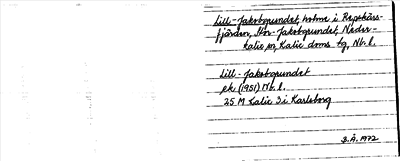 Lill-Jakobgrundet, holme i Repskärs-
fjärden, Stor-Jakobgrundet, Neder-
kalix sn, Kalix doms. tg, Nb. l.
Lill-Jakobgrundet
ek. (1951) Nb. l.
25 M Kalix 3i Karlsborg
3.Å. 1972